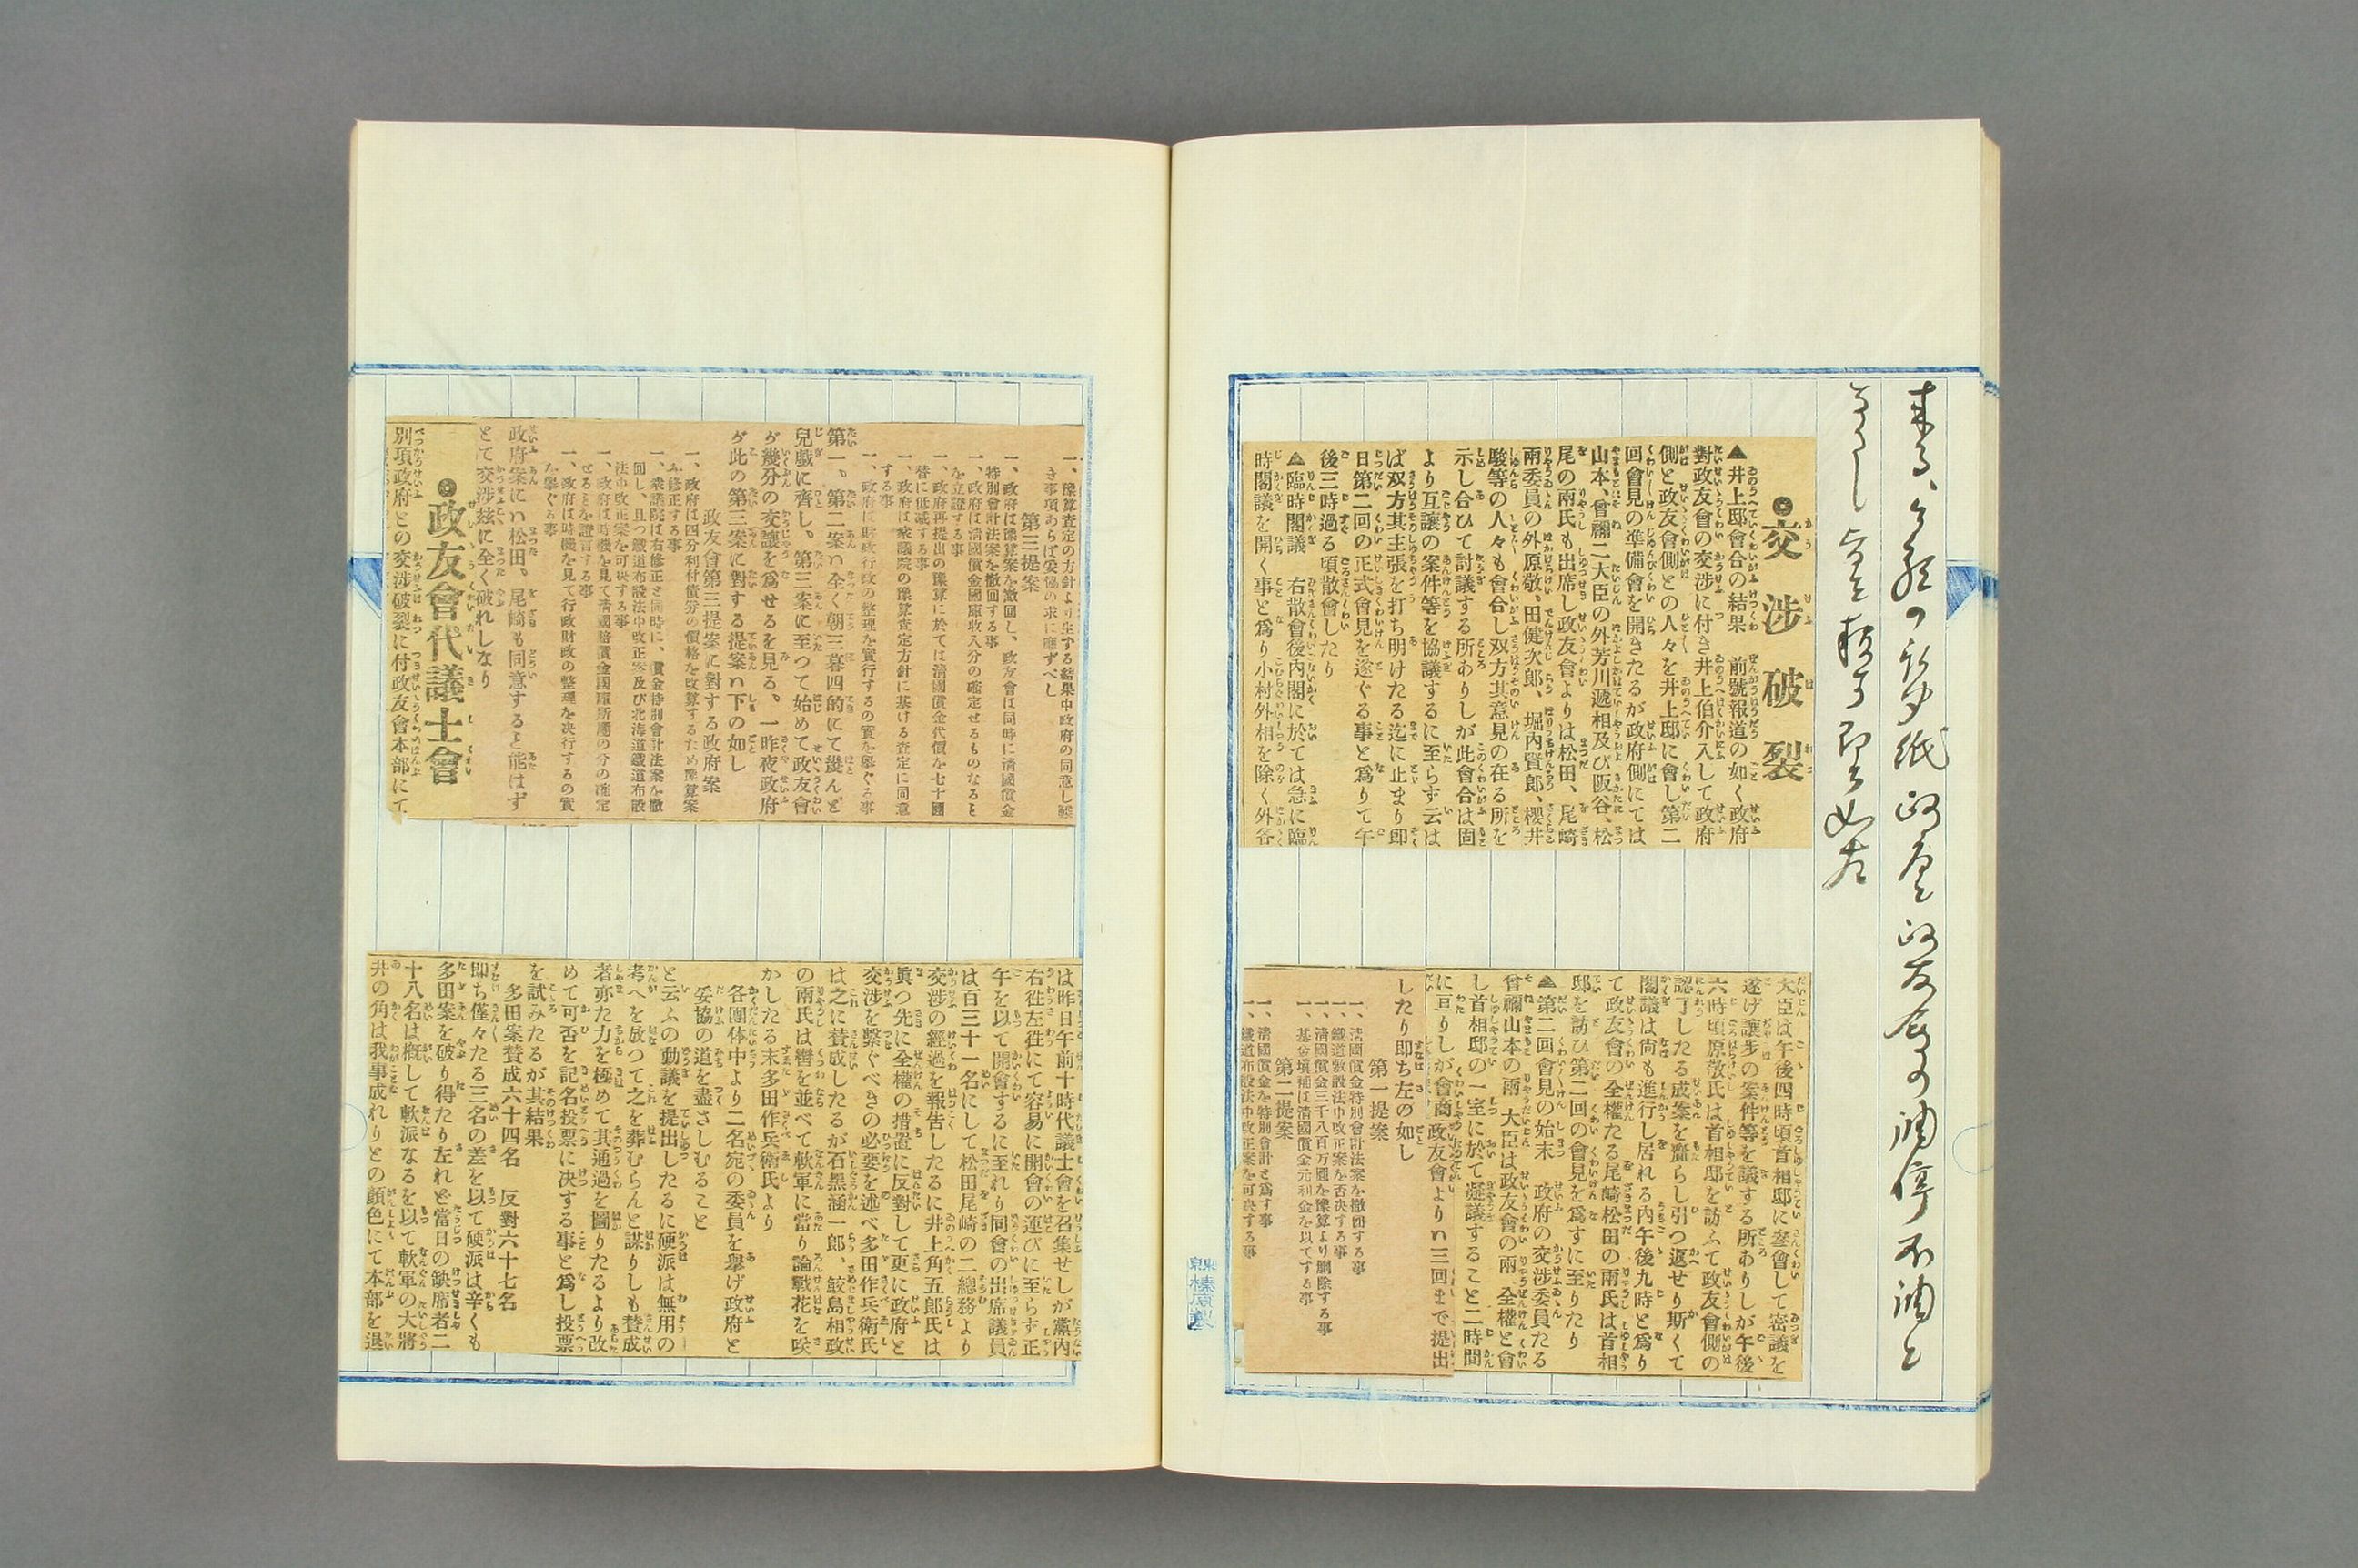 ◎交渉破裂
▲井上邸會合の結果　前號報道の如く政府
對政友會の交渉に付き井上伯介入して政府
側と政友會側との人々を井上邸に會し第二
回會見の準備會を開きたるが政府側にては
山本、曾禰二大臣の外芳川遞相及び阪谷、松
尾の兩氏も出席し政友會よりは松田、尾崎
兩委員の外原敬、田健次郎、堀内賢郎、櫻井
駿等の人々も會合し双方其意見の在る所を
示し合ひて討議する所ありしが此會合は固
より互讓の案件等を協議するに至らず云は
ば双方其主張を打ち明けたる迄に止まり即
日第二回の正式會見を遂ぐる事と爲りて午
後三時過る頃散會したり
▲臨時閣議　右散會後内閣に於ては急に臨
時閣議を開く事と爲り小村外相を除く外各
大臣は午後四時頃首相邸に參會して密議を
遂げ讓步の案件等を議する所ありしが午後
六時頃原敬氏は首相邸を訪ふて政友會側の
認了したる成案を齎らし引つ返せり斯くて
閣議は尙も進行し居れる内午後九時と爲り
て政友會の全權たる尾崎松田の兩氏は首相
邸を訪ひ第二回の會見を爲すに至りたり
▲第二回會見の始末　政府の交渉委員たる
曾禰山本の兩大臣は政友會の兩全權と會
し首相邸の一室に於て凝議すること二時間
に亘りしが會商政友會よりハ三回まで提出
したり即ち左の如し
第一提案
一、淸國償金特別會計法案を撤回する事
一、鐵道敷設法中改正案を否決する事
一、淸國償金三千八百万圓を豫算より削除する事
一、基金塡補は淸國償金元利金を以てする事
第二提案
一、淸國償金を特別會計と爲す事
一、鐵道布設法中改正案を可決する事
一、豫算査定の方針より生ずる結果中政府の同意し難
き事項あらば妥協の求に應ずべし
第三提案
一、政府は豫算案を撤回し、政友會は同時に淸國償金
特別會計法案を撤回する事
一、政府は淸國償金國庫收入分の確定せるものなると
を立證する事
一、政府再提出の豫算に於ては淸國償金代價を七十國
替に低減する事
一、政府は衆議院の豫算査定方針に基ける査定に同意
する事
一、政府は財政行政の整理を實行するの實を擧ぐる事
第一。第二案ハ全く朝三暮四的にて幾んど
兒戲に齊し。第三案に至つて始めて政友會
が幾分の交讓を爲せるを見る。一昨夜政府
が此の第三案に對する提案ハ下の如し
政友會第三提案に對する政府案
一、政府は四分利付債券の價格を改算するため豫算案
を修正する事
一、衆議院は右修正と同時に、償金特別會計法案を撤
回し、且つ鐵道布設法中改正案及び北海道鐵道布設
法中改正案を可決する事
一、政府は時機を見て淸國賠償金國庫所屬の分の確定
せることを證言する事
一、政府は時機を見て行政財政の整理を決行するの實
を擧ぐる事
政府案にハ松田、尾崎も同意すると能はず
とて交渉玆に全く破れしなり
◎政友會代議士會
別項政府との交渉破裂に付政友會本部にて
は昨日午前十時代議士會を召集せしが黨内
右徃左徃にて容易に開會の運びに至らず正
午を以て開會するに至れり同會の出席議員
は百三十一名にして松田尾崎の二總務より
交渉の經過を報告したるに井上角五郎氏は
眞つ先に全權の措置に反對して更に政府と
交渉を繫ぐべきの必要を述べ多田作兵衛氏
は之に賛成したるが石黑涵一郎、鮫島相政
の兩氏は轡を並べて軟軍に當り論戰花を咲
かしたる末多田作兵衛氏より
各團体中より二名宛の委員を擧げ政府と
妥協の道を盡さしむること
と云ふの動議を提出したるに硬派は無用の
考へを放つて之を葬むらんと謀りしも賛成
者亦た力を極めて其通過を圖りたるより改
めて可否を記名投票に決する事と爲し投票
を試みたるが其結果
多田案賛成六十四名　反對六十七名
即ち僅々たる三名の差を以て硬派は辛くも
多田案を破り得たり左れど當日の缺席者二
十八名は概して軟派なるを以て軟軍の大將
井の角は我事成れりとの顏色にて本部を退